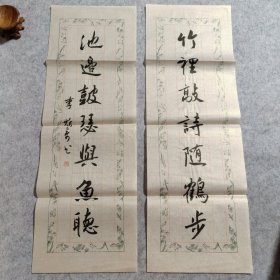 竹裡敲詩隨鶴步
池邊鼓瑟與魚聽